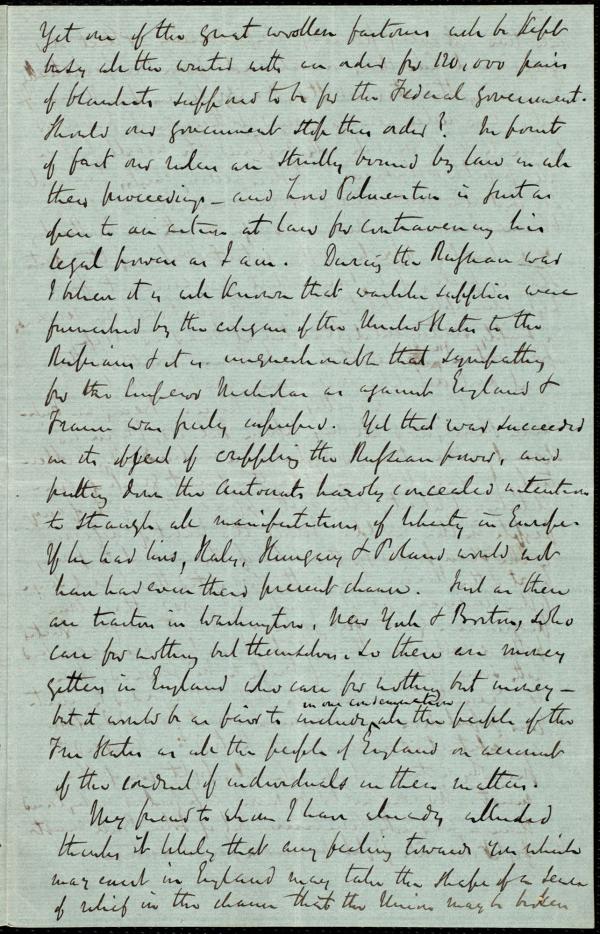 Yet one of the great woollen factories will be kept
busy all the winter with an order for 120,000 pairs
of blankets supposed to be for the Federal government.
Should our government stop this order? In point
of fact our rulers are strictly bound by law in all
their proceedings – and Lord Palmerston is just as
open to an action at law for contravening his
legal powers as I am. During the Russian war
I believe it is well known that warlike supplies were
furnished by the citizens of the United States to the
Russians & it is unquestionable that sympathy
for the Emperor Nicholas as against England &
France was freely expressed. Yet that war succeeded
in its object of crippling the Russian power, and
putting down the Autocrat's hardly concealed intention
to strangle all manifestations of liberty in Europe.
If he had lived, Italy, Hungary & Poland would not
have had even their present chance. Just as there
are traitors in Washington, New York & Boston, who
care for nothing but themselves, so there are money
getters in England who care for nothing but money –
in one condemnation
but it would be as fair to include all the people of the
Free States as all the people of England on account
of the conduct of individuals in these matters.
My friend to whom I have already alluded
thinks it likely that any feeling towards you which
may exist in England may take the shape of a sense
of relief in the chance that the Union may be broken